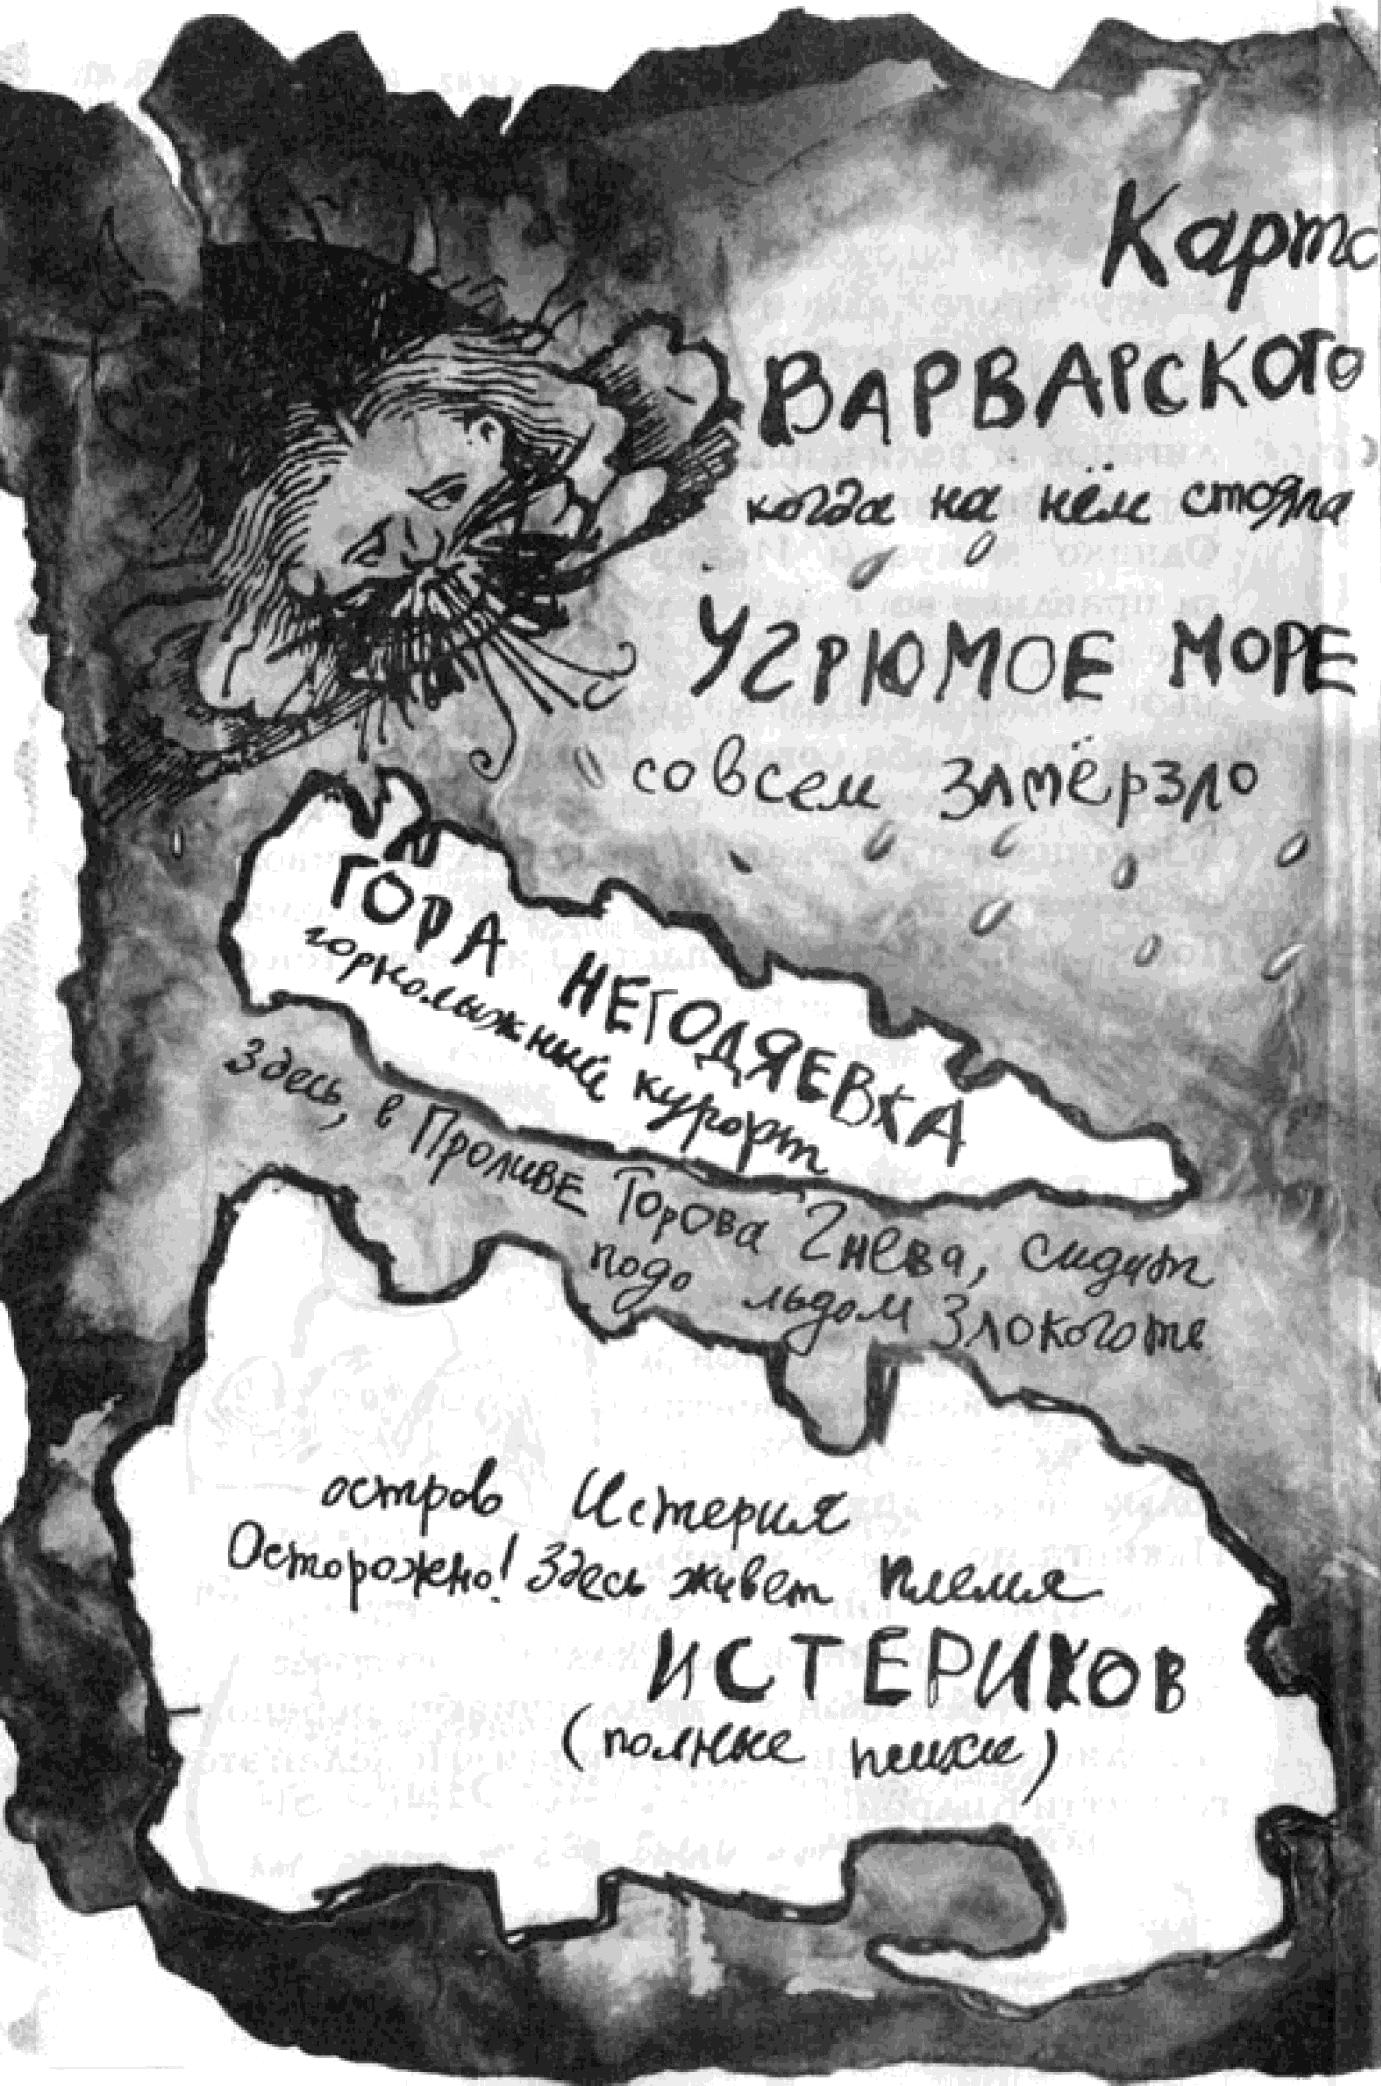 Карта
ВАРВАРСКОГО
когда на нём стояла
УГРЮМОЕ МОРЕ
совсем замёрзло
ГОРА НЕГОДЯЕВКА
горнолыжный курорт
Здесь, в Проливе Торова Гнева, сидят
подо льдом Злокогти
остров Истерия
Осторожно! Здесь живет племя
ИСТЕРИКОВ
(полные психи)